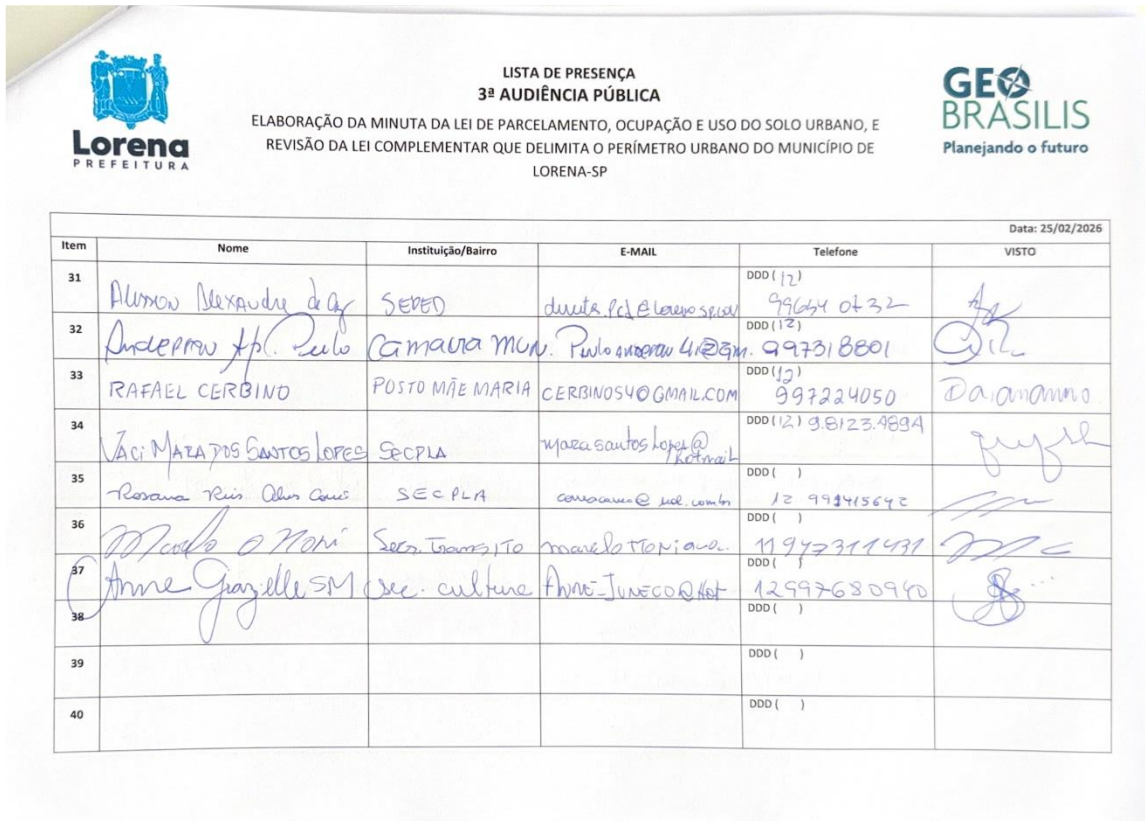 Lorena
PREFEITURA
LISTA DE PRESENÇA
3ª AUDIÊNCIA PÚBLICA
ELABORAÇÃO DA MINUTA DA LEI DE PARCELAMENTO, OCUPAÇÃO E USO DO SOLO URBANO, E
REVISÃO DA LEI COMPLEMENTAR QUE DELIMITA O PERÍMETRO URBANO DO MUNICÍPIO DE
LORENA-SP
GEO
BRASILIS
Planejando o futuro
Data: 25/02/2026
Item Nome Instituição/Bairro E-MAIL Telefone VISTO
31 Alexandre de SEPED DDD (12)
32 Anderson Ap. Câmara Mun. DDD (12) 997318801
33 RAFAEL CERBINO POSTO MÃE MARIA CERBINOS4@GMAIL.COM DDD (12) 997224050
34 MARA DOS SANTOS LOPES SECPLA marasantoslopes@hotmail DDD (12) 9.8123.4894
35 Rosana SECPLA DDD ( ) 12
36 Secr. Transito DDD ( ) 11947311431
37 Anne Grazielle SM Sec. cultura ANNE-JUNECO@Hot DDD ( ) 12997680940
38 DDD ( )
39 DDD ( )
40 DDD ( )